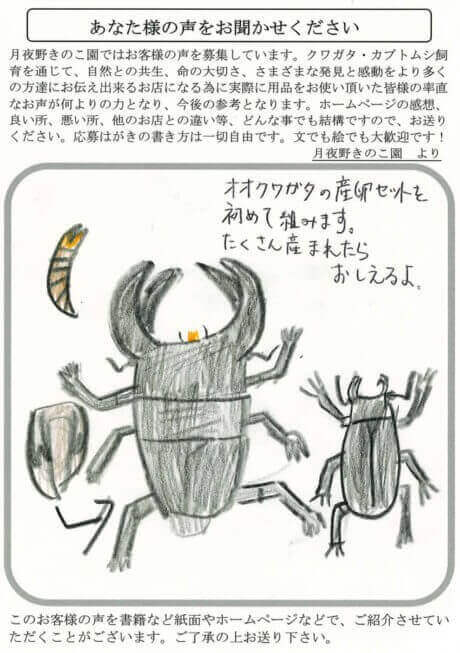 あなた様の声をお聞かせください
月夜野きのこ園ではお客様の声を募集しています。クワガタ・カブトムシ飼
育を通じて、自然との共生、命の大切さ、さまざまな発見と感動をより多く
の方達にお伝え出来るお店になる為に実際に用品をお使い頂いた皆様の率直
なお声が何よりの力となり、今後の参考となります。ホームページの感想、
良い所、悪い所、他のお店との違い等、どんな事でも結構ですので、お送り
ください。応募はがきの書き方は一切自由です。文でも絵でも大歓迎です！
月夜野きのこ園　より
オオクワガタの産卵セットを
初めて組みます。
たくさん産まれたら
おしえるよ。
このお客様の声を書籍など紙面やホームページなどで、ご紹介させてい
ただくことがございます。ご了承の上お送り下さい。